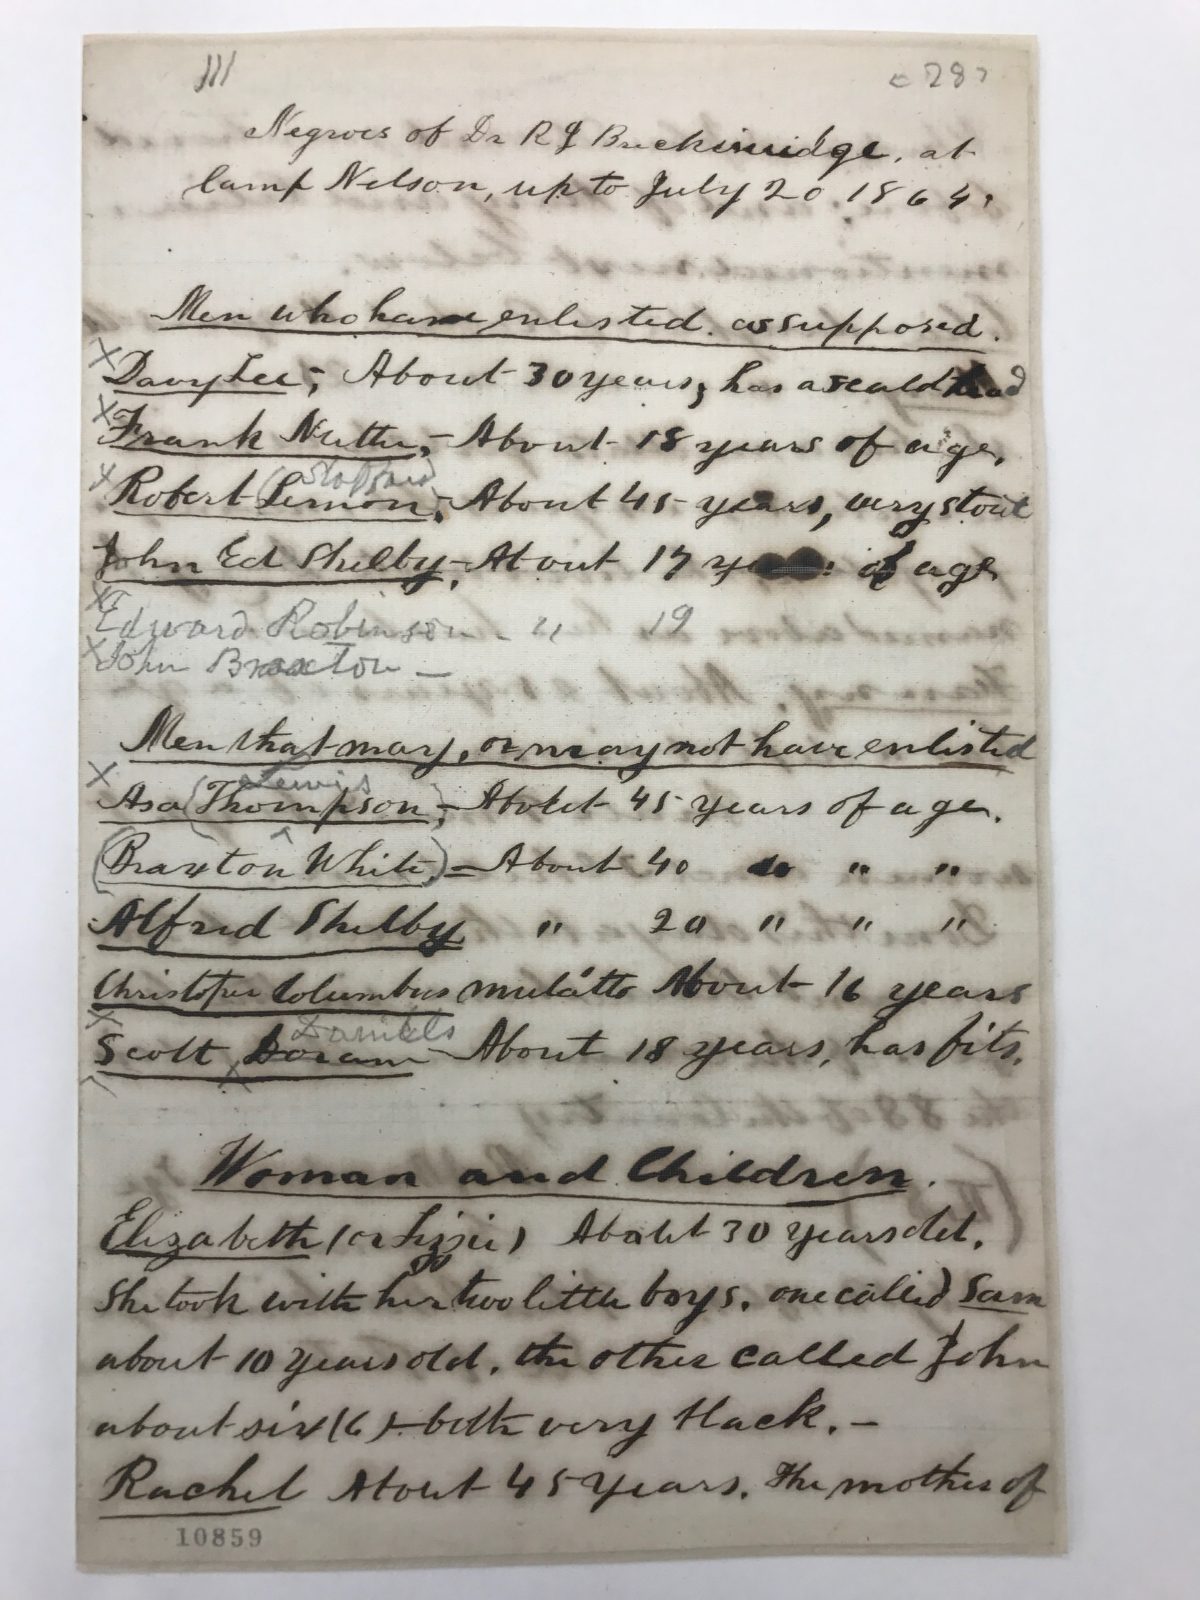 <287
Negroes of Dr R J Breckinridge, at
Camp Nelson, up to July 20 1864.
Men who have enlisted as supposed.
x Davy Lee; About 30 years; has a scald head
x Frank Nutter, - About 18 years of age.
x Robert (Lemon, - About 45 years, very stout
John Ed Shelby, - About 17 years of age
x Edward Robinson - " 19
x John Braxton -
Men that may, or may not have enlisted
Lewis
x Asa (Thompson), - About 45 years of age.
(Braxton White,) - About 40 do " "
Alfred Shelby " 20 " " "
Christopher Columbus mulatto About 16 years
Daniels
x Scott Doram - About 18 years, has fits.
Woman and Children.
Elizabeth (or Lizzie) About 30 years old.
She took with her two little boys. one called Sam
about 10 years old. the other called John
about six (6) - both very black. -
Rachel About 45 years. The mother of
10859